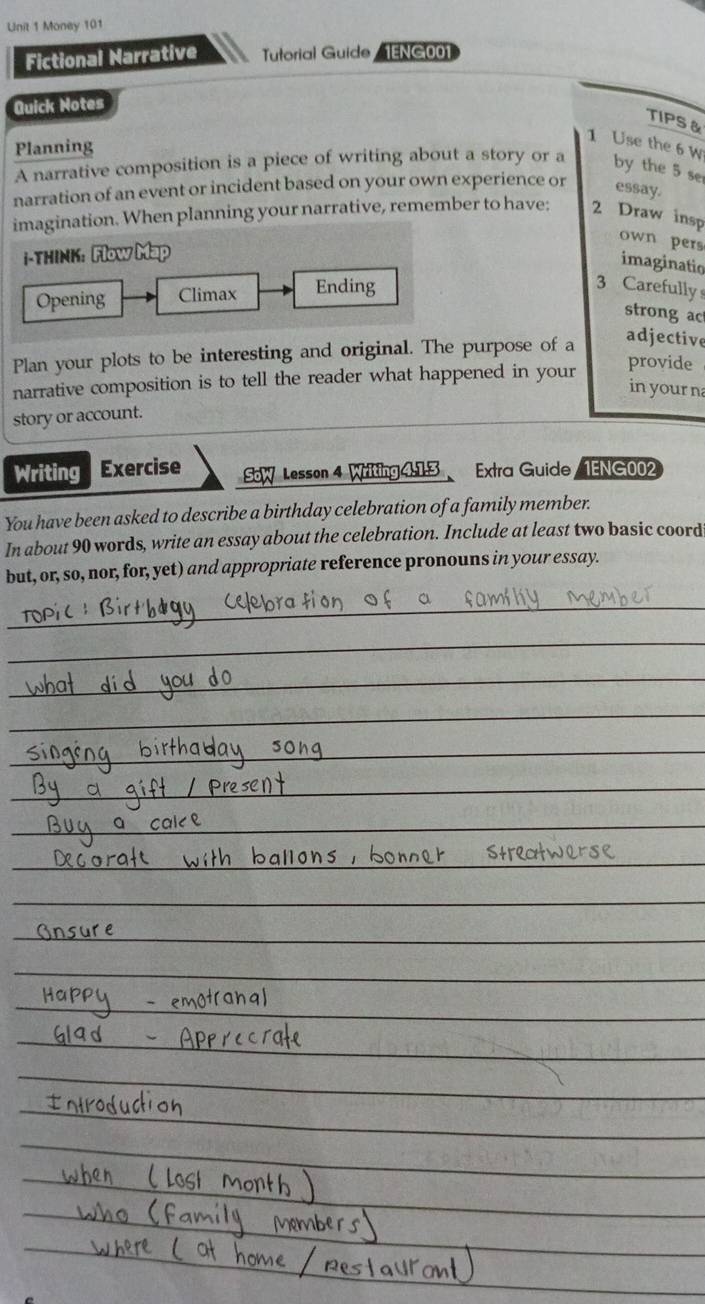 Unit 1 Money 101
Fictional Narrative
Tutorial Guide 1ENG001
Quick Notes
Planning
A narrative composition is a piece of writing about a story or a
narration of an event or incident based on your own experience or
imagination. When planning your narrative, remember to have:
i-THINK: Flow Map
Opening
Climax
Ending
Plan your plots to be interesting and original. The purpose of a
narrative composition is to tell the reader what happened in your
story or account.
TIPS &
1 Use the 6 W
by the 5 se
essay.
2 Draw insp
own pers
imaginatio
3 Carefully s
strong ac
adjective
provide
in your na
Writing Exercise
SoW Lesson 4 Writing 4.1.3
Extra Guide 1ENG002
You have been asked to describe a birthday celebration of a family member.
In about 90 words, write an essay about the celebration. Include at least two basic coordi
but, or, so, nor, for, yet) and appropriate reference pronouns in your essay.
Topic : celebration of a member
what did you do
singing song
By a gift / present
Buy a cake
Decorate with ballons, bonner
onsure
Happy - emotranal
Glad - Apprecrate
Introduction
when (Last month)
who (family members)
where (at home / Restaurant)